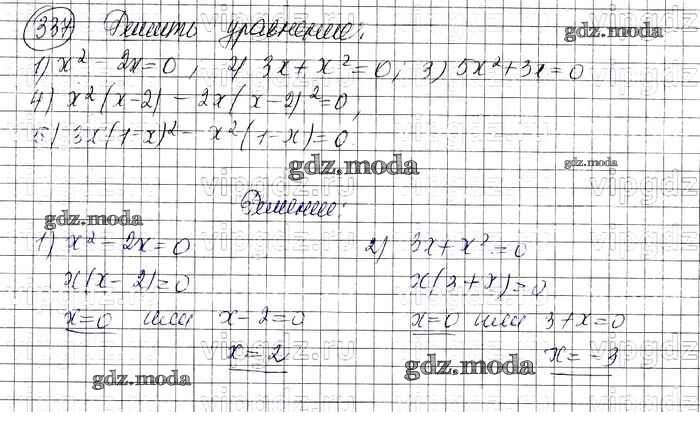 337 Решить уравнение:
gdz.moda
1) x² - 2x = 0, 2) 3x + x² = 0; 3) 5x² + 3x = 0
4) x²(x-2) - 2x(x-2)² = 0,
5) 3x(1-x)² - x²(1-x) = 0
gdz.moda gdz.moda
vipgdz.ru
Решение:
gdz.moda
1) x² - 2x = 0 2) 3x + x² = 0
x(x-2) = 0 x(3+x) = 0
x = 0 или x-2 = 0 x = 0 или 3+x = 0
x = 2 x = -3
vipgdz.ru
gdz.moda gdz.moda